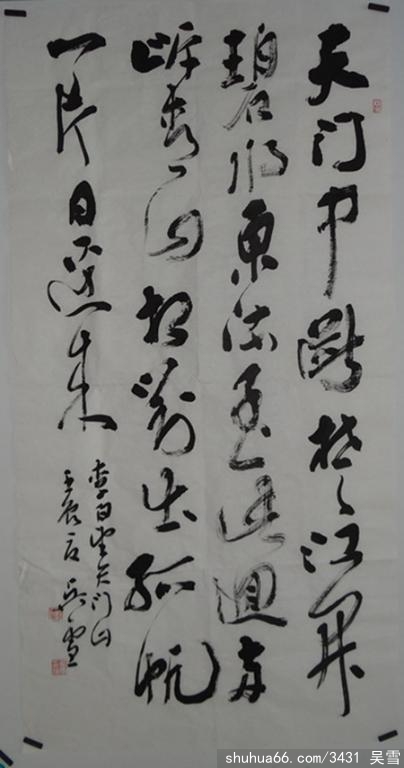 天门中断楚江开
碧水東流至此迴两
岸青山相对出孤帆
一片日边来
李白望天门山
壬辰 吴雪
shuhua66.com/3431 吴雪